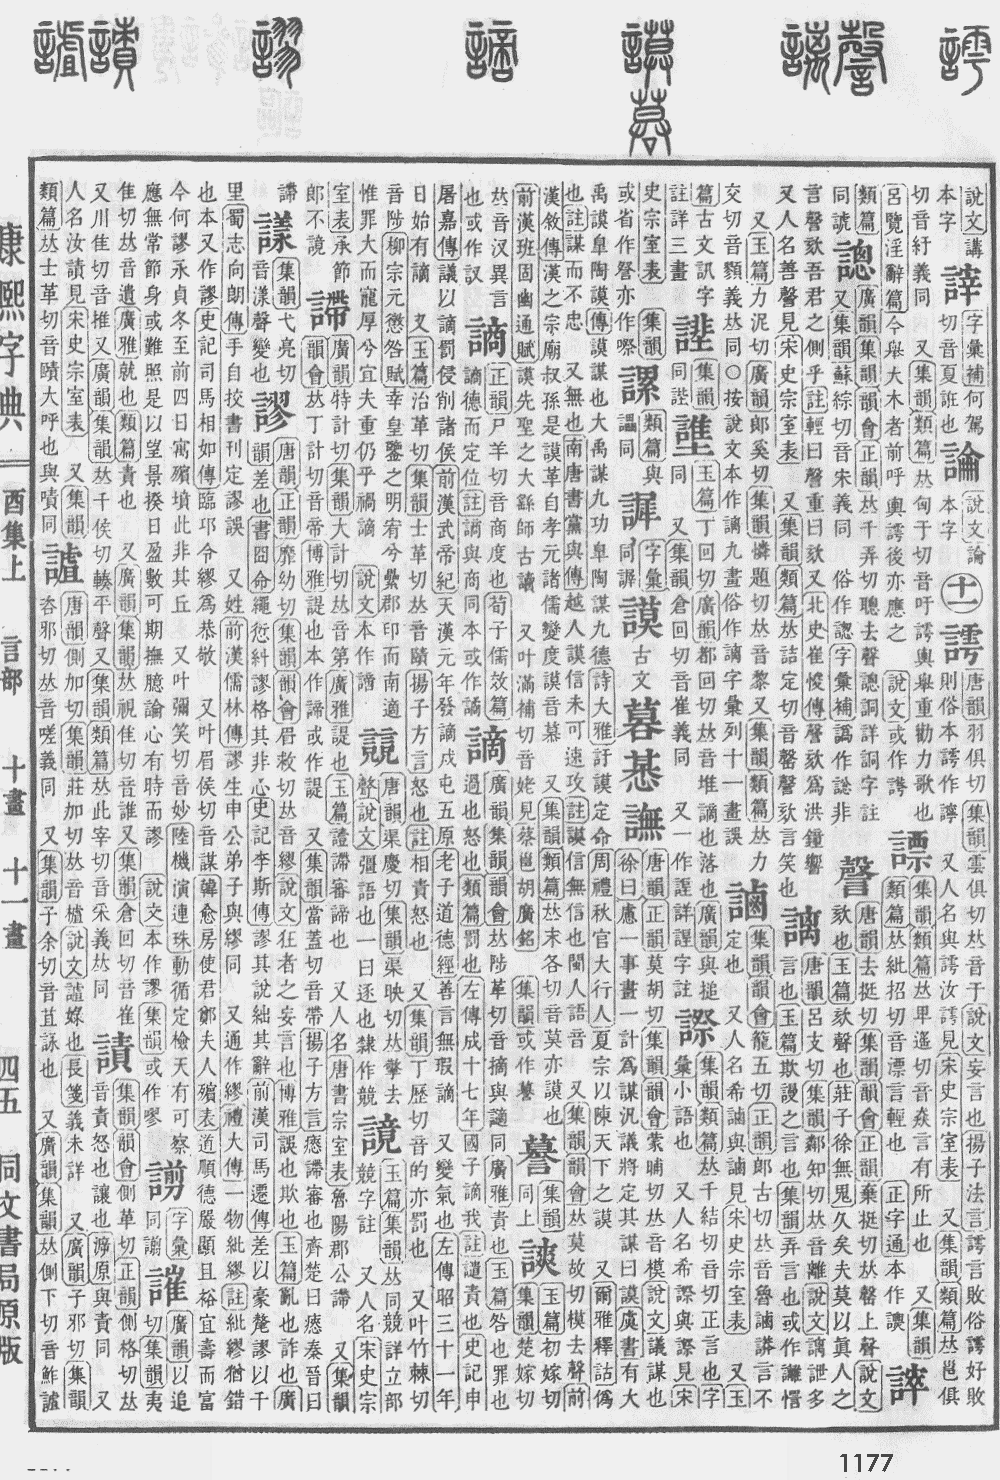 說文講 字彙補何駕 論 說文論 十一 謣 唐韻羽俱切集韻雲俱切𠀤音于說文妄言也揚子法言謣言敗俗謣好敗
本字 切音夏誑也 本字 則俗本謣作謼 又人名與謣汝謣見宋史宗室表 又集韻類篇𠀤邕俱
切音紆義同 又集韻類篇𠀤匈于切音吁謣輿舉重勸力歌也 謤 集韻類篇𠀤卑遙切音猋言有所止也 又集韻
呂覽淫辭篇今舉大木者前呼輿謣後亦應之 說文或作 類篇𠀤紕招切音漂言輕也 正字通本作
類篇 謥 廣韻集韻韻會正韻𠀤千弄切聰去聲謥詷詳詷字註 謦 唐韻去挺切集韻韻會正韻棄挺切𠀤罄上聲說文
同諕 又集韻蘇綜切音宋義同 俗作 字彙補譌作 非 欬也玉篇欬聲也莊子徐無鬼久矣夫莫以眞人之
言謦欬吾君之側乎註輕曰謦重曰欬又北史崔㥄傳謦欬爲洪鐘響 謧 唐韻呂支切集韻鄰知切𠀤音離說文謧詍多
又人名善謦見宋史宗室表 又集韻類篇𠀤詰定切音磬謦欬言笑也 言也玉篇欺謾之言也集韻弄言也或作讈㦒
又玉篇力泥切廣韻郎奚切集韻憐題切𠀤音黎又集韻類篇𠀤力 謪 集韻韻會龍五切正韻郎古切𠀤音魯 言不
交切音 義𠀤同 按說文本作謧九畫俗作 字彙列十一畫誤 定也 又人名希 與 見宋史宗室表 又玉
篇古文訊字 䜅 集韻 謉 玉篇丁回切廣韻都回切𠀤音堆謫也落也廣韻與搥 𧬌 集韻類篇𠀤千結切音切正言也字
註詳三畫 同誰 同 又集韻倉回切音崔義同 又一作 詳 字註 彙小語也 又人名希 與 見宋
史宗室表 集韻 謖 類篇與 謘 字彙 謨 古文 𠻚 惎 譕 唐韻正韻莫胡切集韻韻會蒙晡切𠀤音模說文議謀也
或省作 亦作 謳同 同謘 徐曰慮一事畫一計爲謀汎議將定其謀曰謨虞書有大
禹謨皐陶謨傳謨謀也大禹謀九功皐陶謀九德詩大雅訏謨定命周禮秋官大行人夏宗以陳天下之謨 又爾雅釋詁僞
也註謀而不忠 又無也南唐書黨與傳越人謨信未可速攻註謨信無信也閩人語音 又集韻韻會𠀤莫故切模去聲前
漢敘傳漢之宗廟叔孫是謨革自孝元諸儒變度謨音慕 又集韻類篇𠀤末各切音莫亦謨也 謩 集韻 謲 玉篇初嫁切
前漢班固幽通賦謨先聖之大繇師古讀 又叶滿補切音姥見蔡邕胡廣銘 集韻或作 同上 集韻楚嫁切
𠀤音汊異言 謫 正韻尸羊切音商度也荀子儒效篇 謫 廣韻集韻韻會𠀤陟革切音摘與讁同廣雅責也玉篇咎也罪也
也或作訍 謪德而定位註謪與商同本或作謫 過也怒也類篇罰也左傳成十七年國子謫我註譴責也史記申
屠嘉傳議以謫罰侵削諸侯前漢武帝紀天漢元年發謫戍屯五原老子道德經善言無瑕謫 又變氣也左傳昭三十一年
日始有謫 又玉篇治革切集韻士革切𠀤音賾揚子方言怒也註相責怒也 又集韻丁歷切音的亦罰也 又叶竹棘切
音陟柳宗元懲咎賦幸皇鑒之明宥兮纍郡印而南適 䜘 唐韻渠慶切集韻渠映切𠀤擎去 謴 玉篇集韻𠀤同競詳立部
惟罪大而寵厚兮宜夫重仍乎禍謫 說文本作 聲說文彊語也一曰逐也隸作競 競字註 又人名宋史宗
室表承節 䜠 廣韻特計切集韻大計切𠀤音第廣雅諟也玉篇 審諦也 又人名唐書宗室表魯陽郡公 又集韻
郎不 韻會𠀤丁計切音帝博雅諟也本作諦或作諟 又集韻當蓋切音帶揚子方言㦅 審也齊楚曰㦅秦晉曰
謘 䚷 集韻弋亮切 謬 唐韻正韻靡幼切集韻韻會眉敎切𠀤音繆說文狂者之妄言也博雅誤也欺也玉篇亂也詐也廣
音漾聲變也 韻差也書囧命繩愆糾謬格其非心史記李斯傳謬其說絀其辭前漢司馬遷傳差以豪氂謬以千
里蜀志向朗傳手自挍書刊定謬誤 又姓前漢儒林傳謬生申公弟子與繆同 又通作繆禮大傳一物紕繆註紕繆猶錯
也本又作謬史記司馬相如傳臨邛令繆爲恭敬 又叶眉侯切音謀韓愈房使君鄭夫人殯表道順德嚴顯且裕宜壽而富
今何謬永貞冬至前四日寓殯墳此非其丘 又叶彌笑切音妙陸機演連珠動循定檢天有可察 謭 字彙 謻 廣韻以追
應無常節身或難照是以望景揆日盈數可期撫臆論心有時而謬 說文本作謬集韻或作嘐 同謭 切集韻夷
隹切𠀤音遺廣雅就也類篇責也 又廣韻集韻𠀤視隹切音誰又集韻倉回切音崔 謮 集韻韻會側革切正韻側格切𠀤
又川隹切音推又廣韻集韻𠀤千侯切 平聲又集韻類篇𠀤此宰切音采義𠀤同 音責怒也讓也 原與責同 又
人名汝謮見宋史宗室表 又集韻 謯 唐韻側加切集韻莊加切𠀤音樝說文謯娽也長箋義未詳 又廣韻子邪切集韻
類篇𠀤士革切音賾大呼也與嘖同 咨邪切𠀤音嗟義同 又集韻子余切音苴詠也 又廣韻集韻𠀤側下切音鮓謯
康熙字典
酉集上 言部 十畫 十一畫 四五 同文書局原版
1177